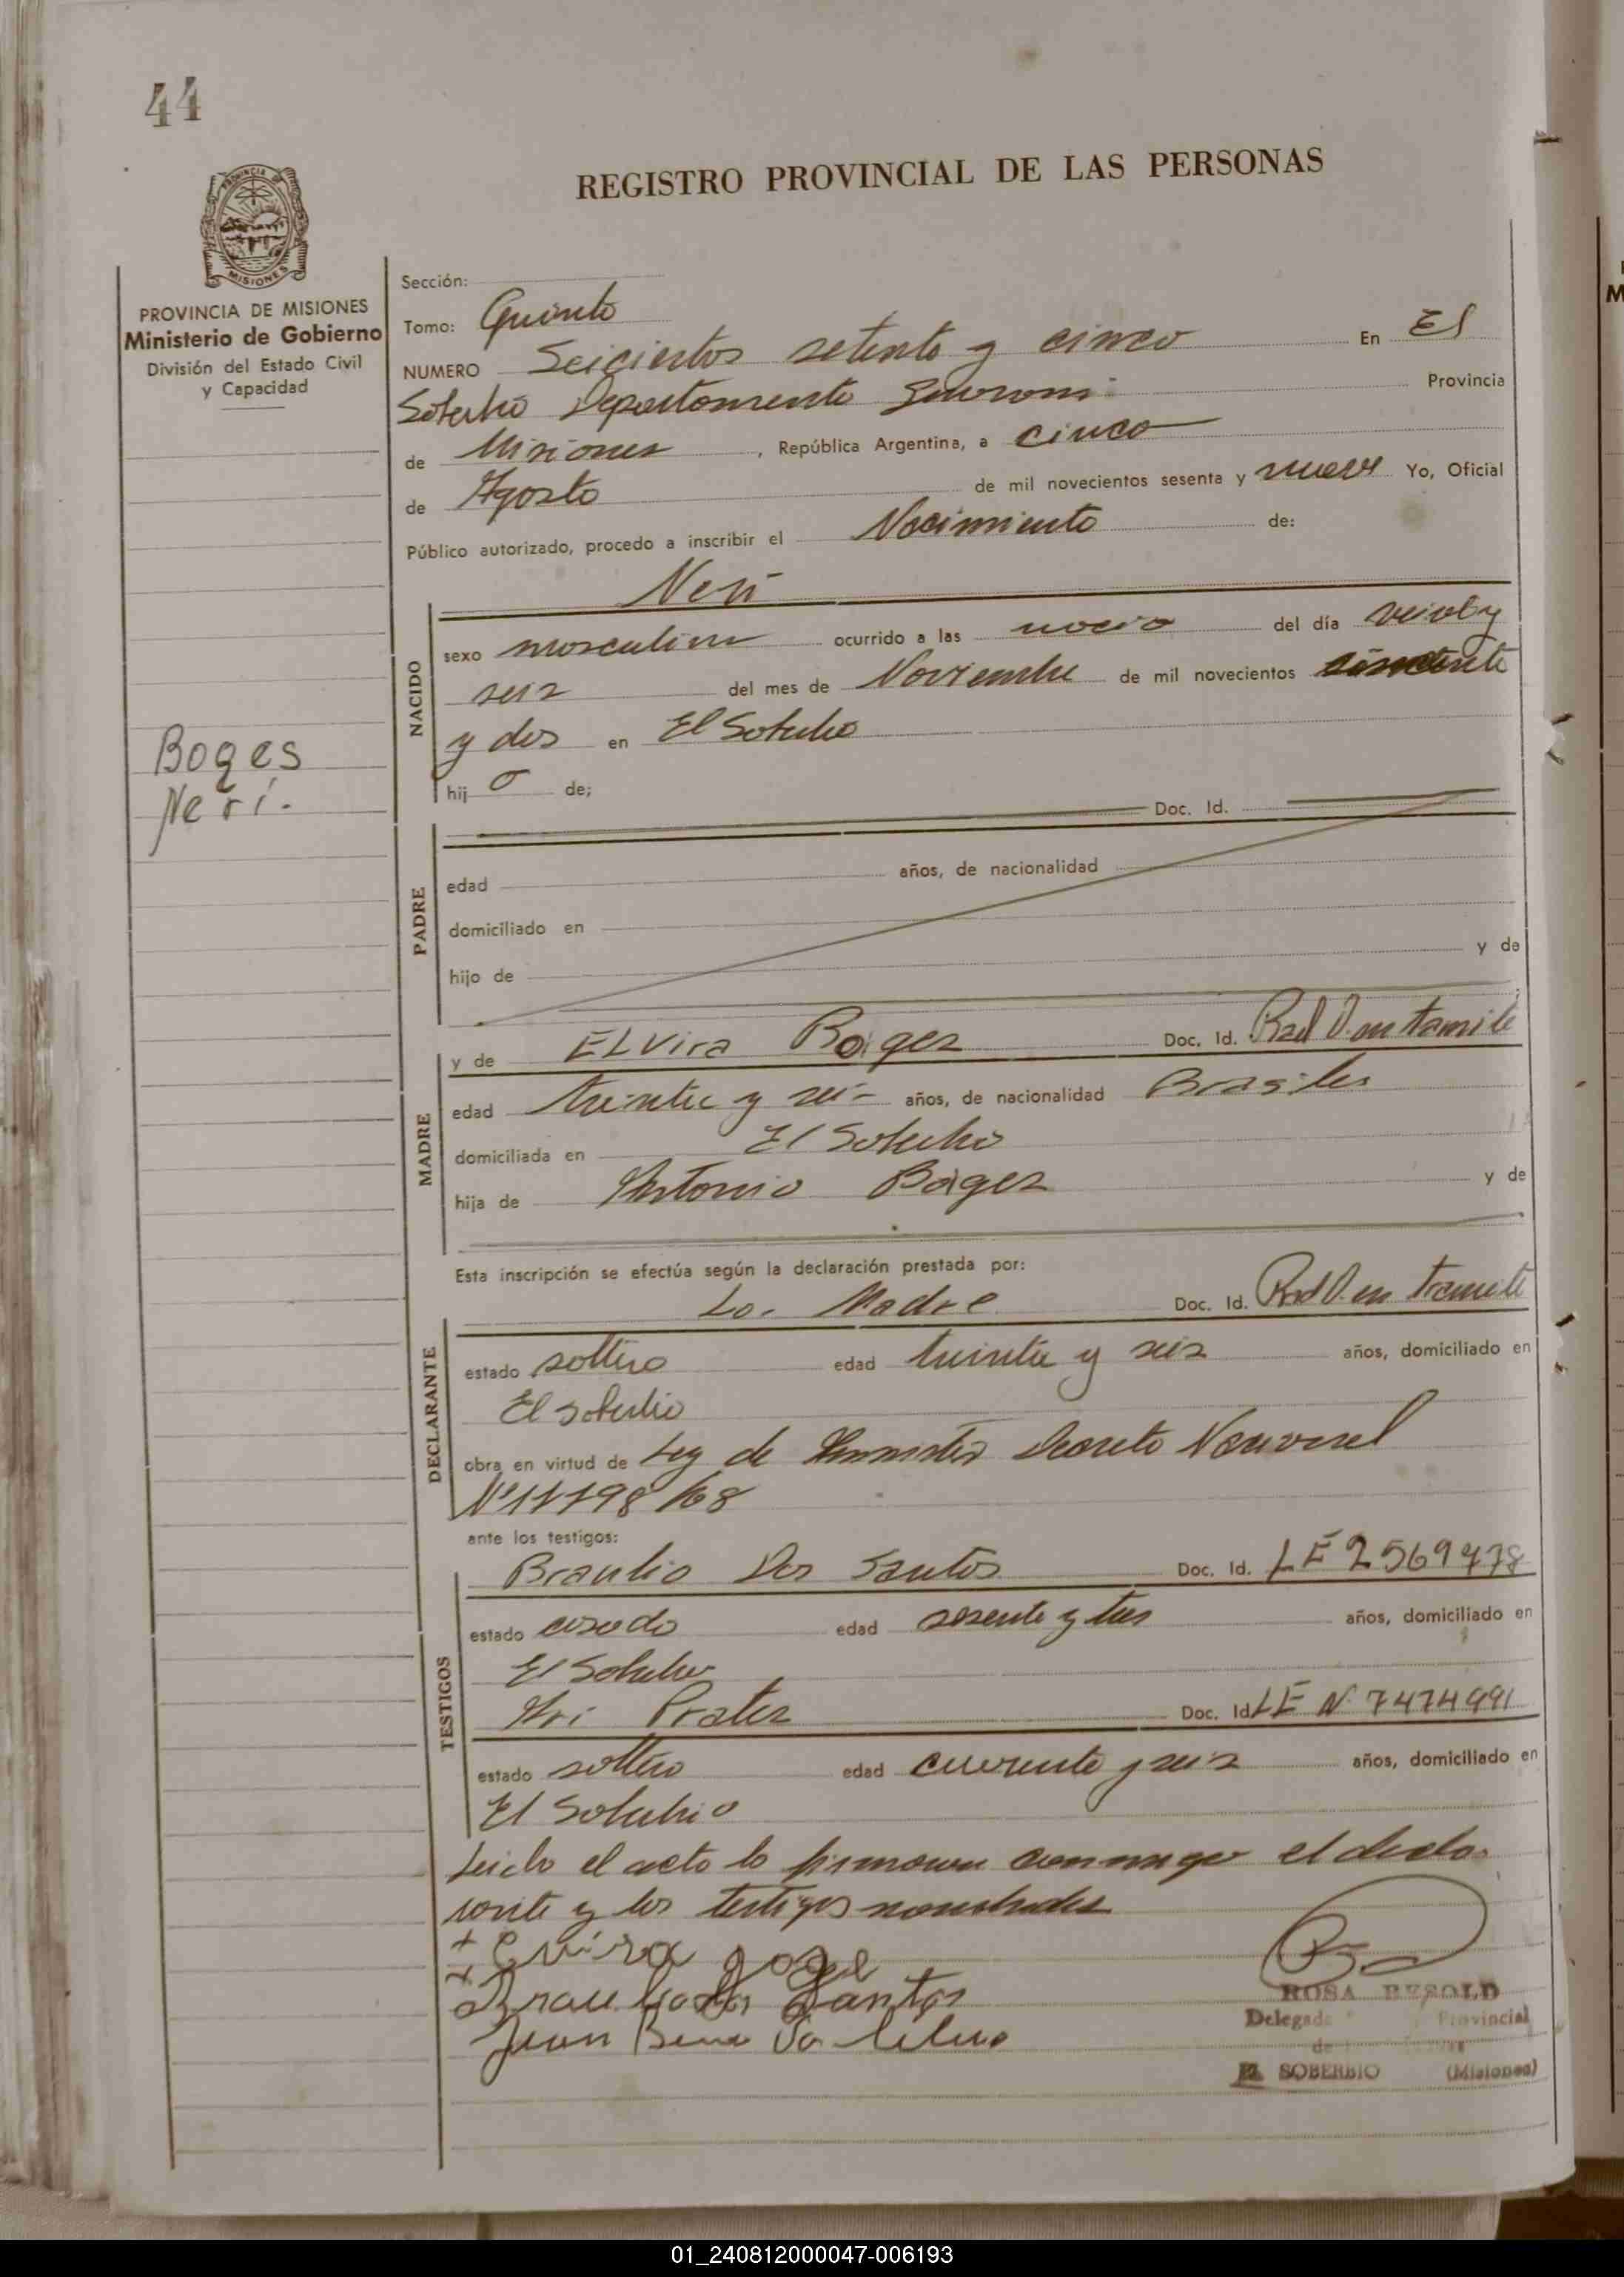 44
REGISTRO PROVINCIAL DE LAS PERSONAS
PROVINCIA DE
MISIONES
PROVINCIA DE MISIONES
Ministerio de Gobierno
División del Estado Civil
y Capacidad
Boges
Neri.
Sección:
Tomo: Quinto
NUMERO Seicientos setenta y cinco En El
Soberbio Departamento Guarani Provincia
de Misiones , República Argentina, a cinco
de Agosto de mil novecientos sesenta y nueve Yo, Oficial
Público autorizado, procedo a inscribir el Nacimiento de:
Neri
NACIDO
sexo masculino ocurrido a las del día veinty
seis del mes de Noviembre de mil novecientos
y dos en El Soberbio
hij o de;
Doc. Id.
PADRE
edad años, de nacionalidad
domiciliado en
hijo de y de
MADRE
y de ELvira Boges Doc. Id. en tramite
edad treinta y seis años, de nacionalidad Brasiler
domiciliada en El Soberbio
hija de Antonio Boges y de
Esta inscripción se efectúa según la declaración prestada por:
La Madre Doc. Id. en tramite
DECLARANTE
estado soltero edad treinta y seis años, domiciliado en
El Soberbio
obra en virtud de Ley de Amnistia Decreto Nacional
Nº 17798/68
ante los testigos:
TESTIGOS
Braulio Dos Santos Doc. Id. LE 2569478
estado casado edad sesenta y tres años, domiciliado en
El Soberbio
Ari Prates Doc. Id. LE Nº 7474991
estado soltero edad cuarenta y seis años, domiciliado en
El Soberbio
Leido el acta lo firmaron conmigo el decla-
rante y los testigos nombrados
+
+
Santos
Juan
ROSA BESOLD
Delegada Provincial
de
El SOBERBIO (Misiones)
01_240812000047-006193